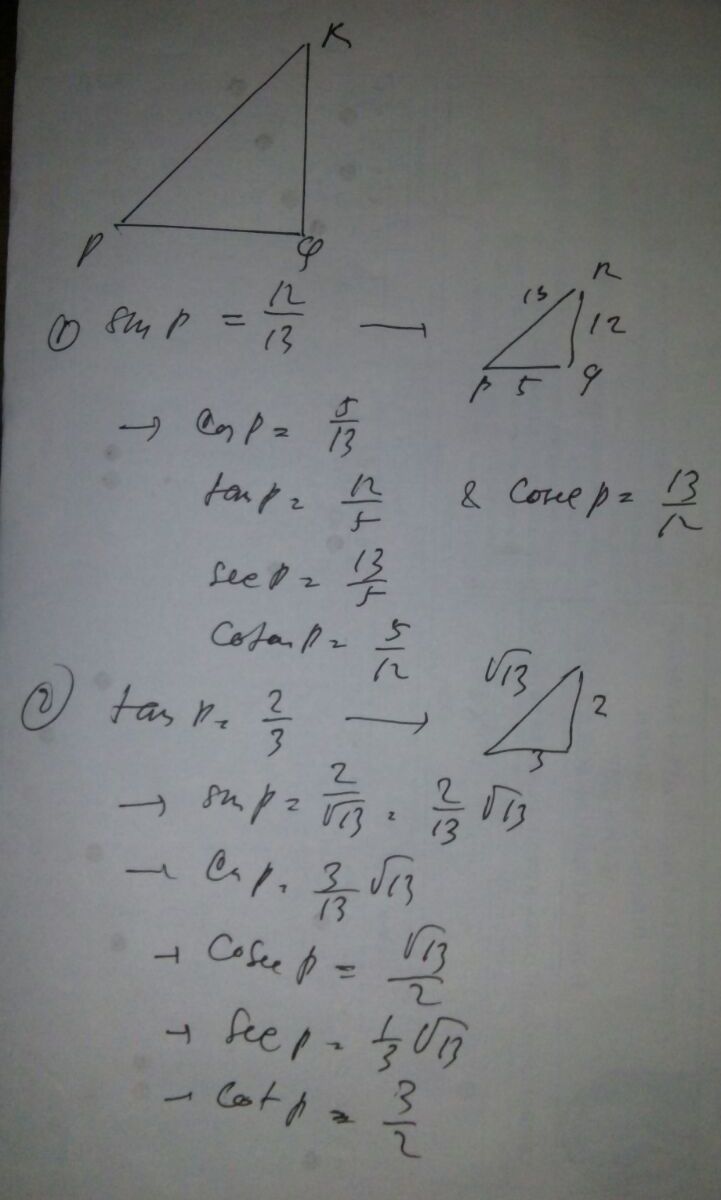 R
P
Q
① sin P = 12/13 →
R
13
12
P 5 Q
→ Cos P = 5/13
tan P = 12/5 & Cosec P = 13/12
sec P = 13/5
Cotan P = 5/12
② tan P = 2/3 →
√13
2
3
→ sin P = 2/√13 = 2/13 √13
→ Cos P = 3/13 √13
→ Cosec P = √13/2
→ Sec P = 1/3 √13
→ Cot P = 3/2